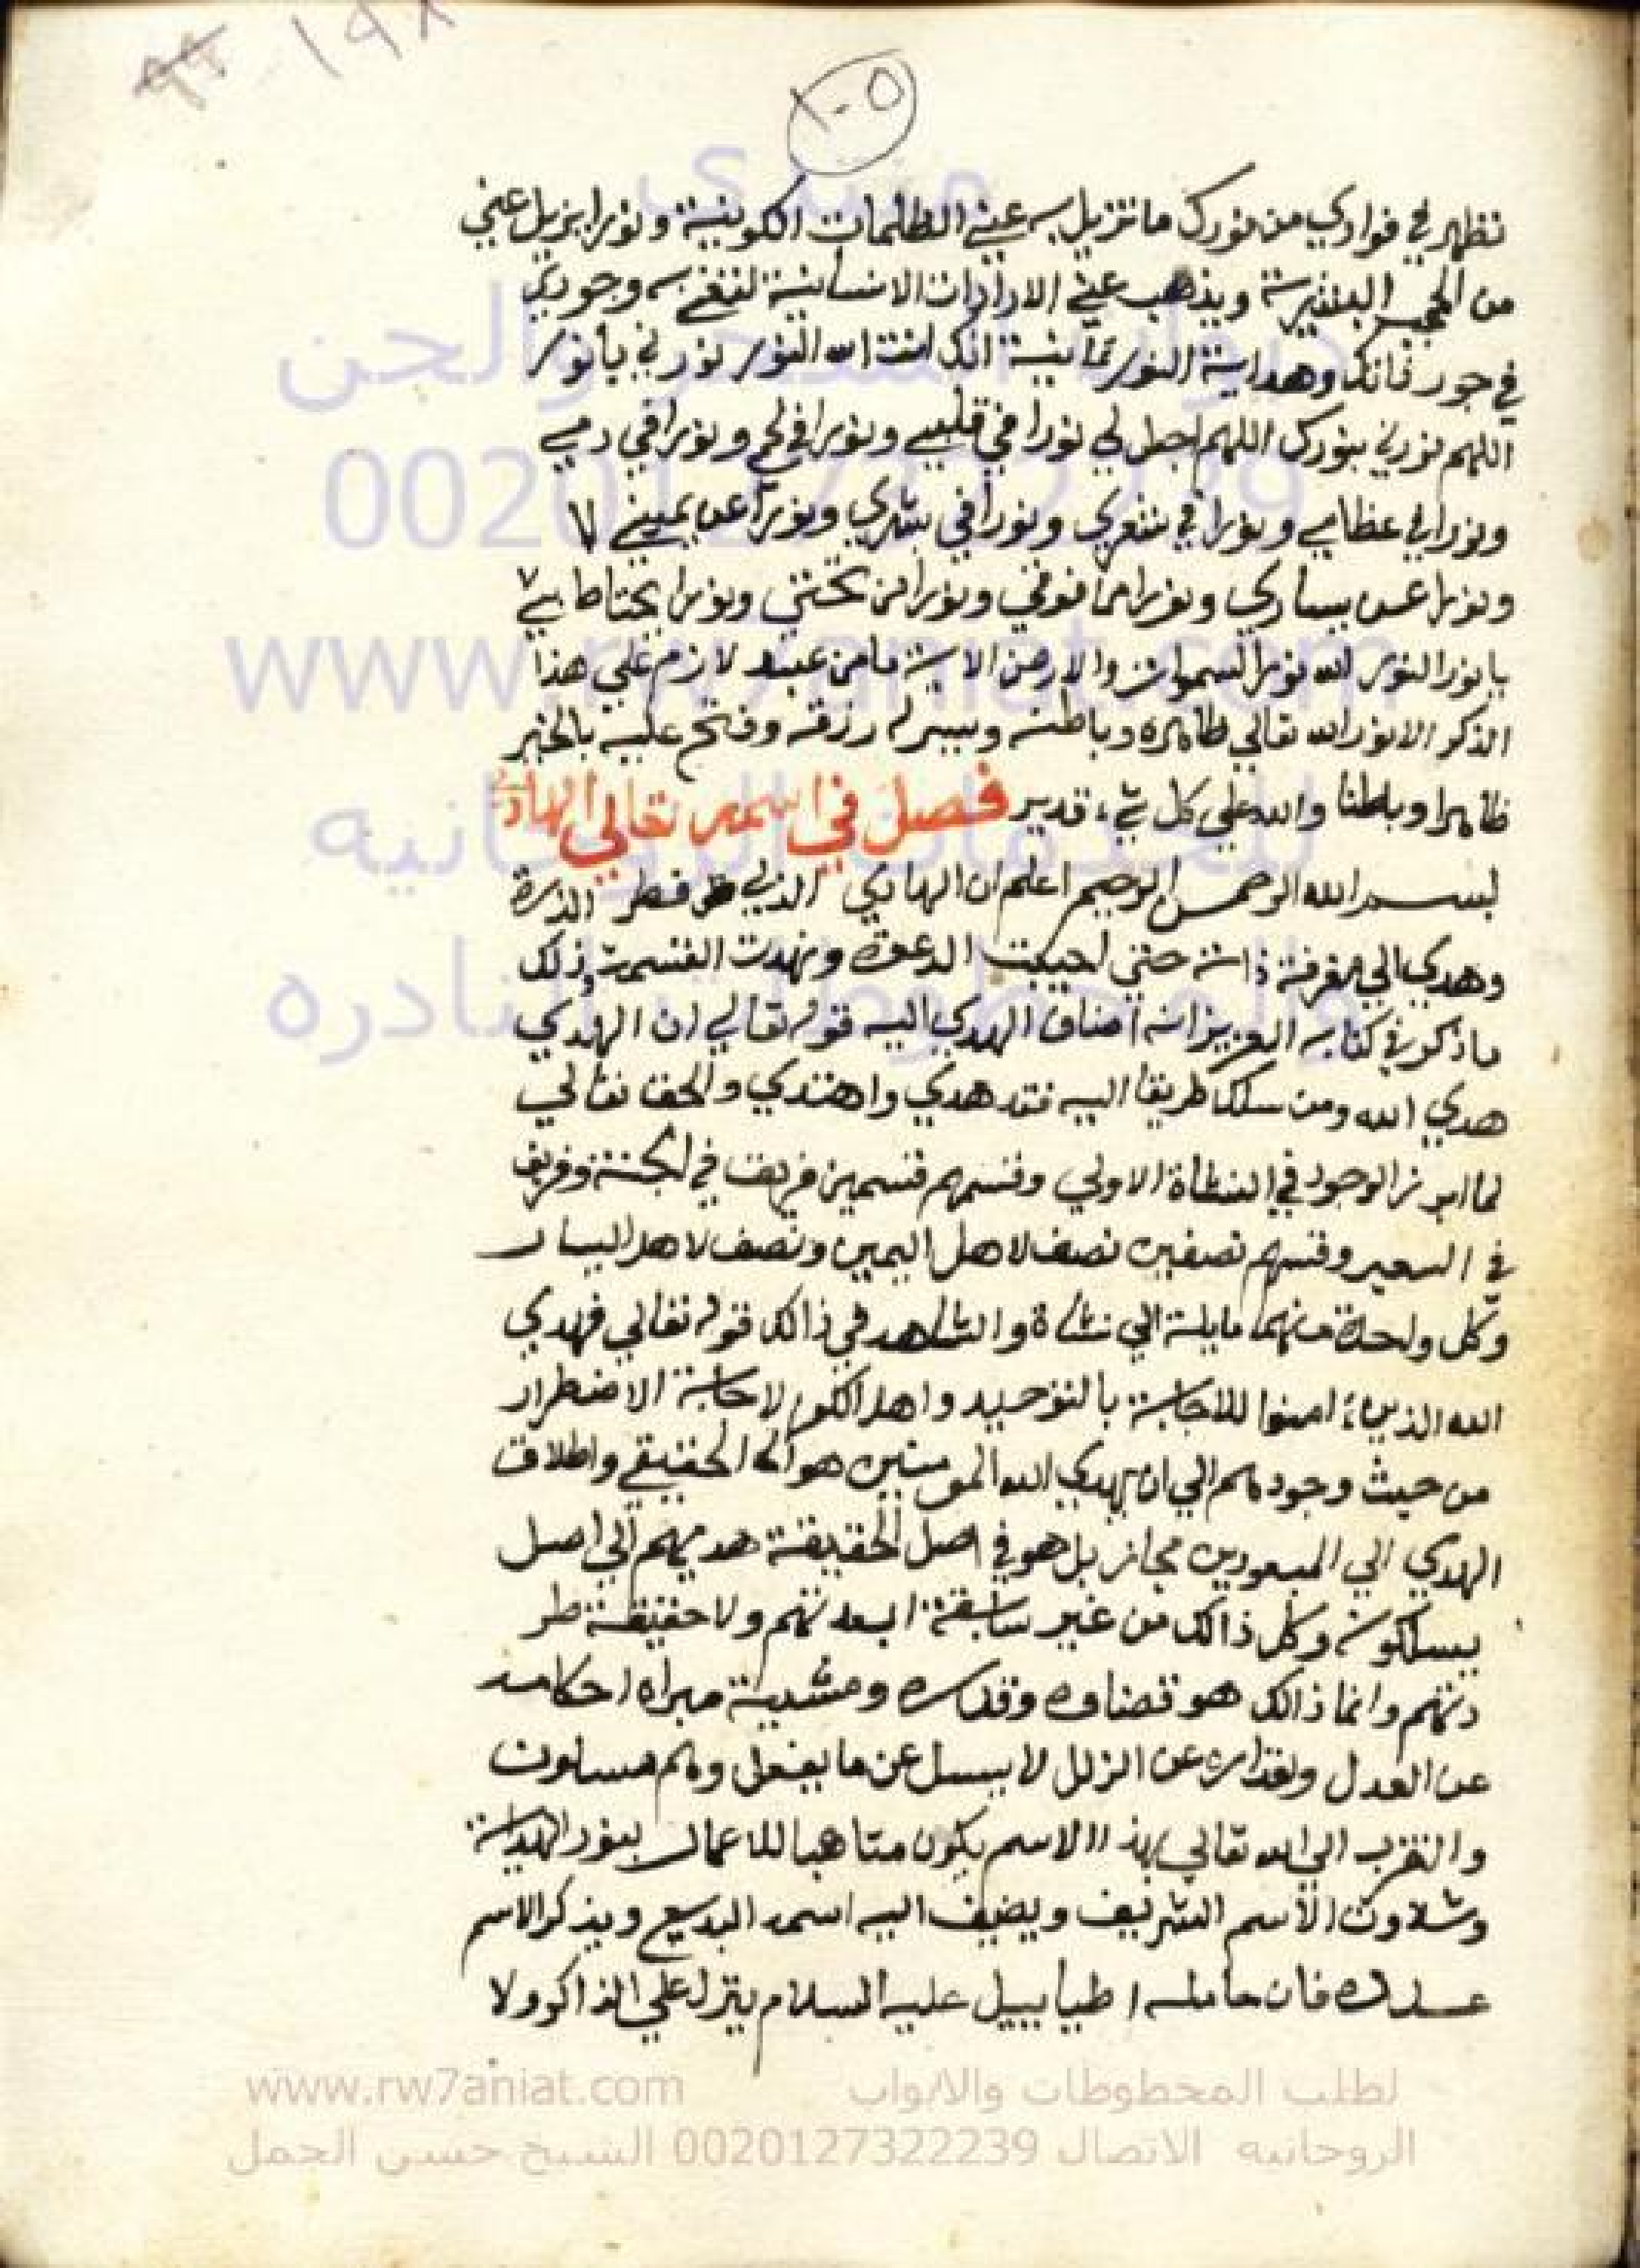 ١٩٨
١٠٥
تظهر في فوادي من نورك ما تزيل به عني الظلمات الكونية ونورا يزيل عني
من الحجب البشرية ويذهب عني الارادات الانسانية لتفني به وجودي
في جود ذاتك وهداية النور انك انت الله النور نورني يا نور
اللهم نورني بنورك اللهم اجعل لي نورا في قلبي ونورا في لحمي ونورا في دمي
ونورا في عظامي ونورا في شعري ونورا في بشري ونورا عن يميني
ونورا عن يساري ونورا من فوقي ونورا من تحتي ونورا
يا نور النور الله نور السموات والارض الاية ما من عبد لازم علي هذا
الذكر الا نور الله تعالي ظاهره وباطنه ويسر له رزقه وفتح عليه بالخير
ظاهرا وباطنا والله علي كل شيء قدير فصل في اسمه تعالي الهادي
بسم الله الرحمن الرحيم اعلم ان الهادي الذي هو فطر الذرة
وهدي الي معرفة ذاته حتي اجيبت الدعوة القسمة وذلك
ما ذكر في كتابه العزيز انه اضاف الهدي اليه قوله تعالي ان الهدي
هدي الله ومن سلك طريقا اليه فقد هدي واهتدي والحق تعالي
لما ابرز الوجود في النشاة الاولي وقسمهم قسمين فريق في الجنة وفريق
في السعير وقسمهم نصفين نصف لاهل اليمين ونصف لاهل اليسار
وكل واحدة منهما مايلة الي نشاة والشاهد في ذالك قوله تعالي فهدي
الله الذين امنوا للاجابة بالتوحيد واهل الكفر لاجابة الاضطرار
من حيث وجودهم الي ان يهدي الله المومنين هو الحقيقي واطلاق
الهدي الي المبعودين مجاز بل هو في اصل الحقيقة هديهم الي اصل
يسلكونه وكل ذالك من غير سابقة ابعدتهم ولا حقيقة طر
دتهم وانما ذالك هو قضاوه وقدره ومشيية مبراه احكامه
عن العدل واقداره عن الزلل لا يسل عن ما يفعل وهم مسلون
والتقرب الي الله تعالي بهذ الاسم يكون متاهبا للاعمال بنور الهداية
وتلاوت الاسم الشريف ويضيف اليه اسمه البديع ويذكر الاسم
عدده فان حامله اطيابييل عليه السلام ينزل علي الذاكر ولا
www.rw7aniat.com لطلب المخطوطات والابواب
الروحانيه الاتصال 0020127322239 الشيخ حسن الجمل